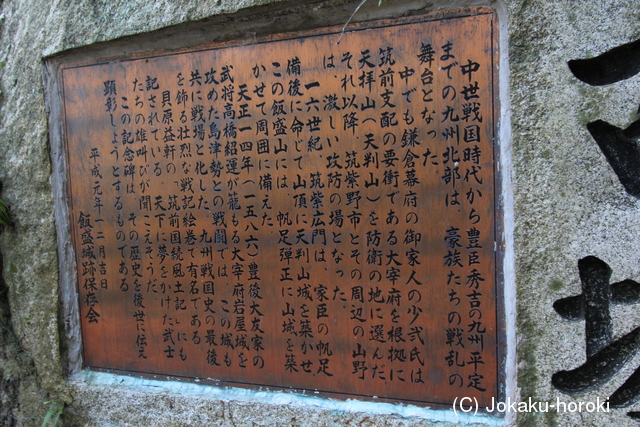 中世戦国時代から豊臣秀吉の九州平定
までの九州北部は、豪族たちの戦乱の
舞台となった。
中でも鎌倉幕府の御家人の少弐氏は
筑前支配の要衝である大宰府を根拠に
天拝山(天判山)を防衛の地に選んだ。
それ以降、筑紫野市とその周辺の山野
は、激しい攻防の場となった。
一六世紀、筑紫広門は、家臣の帆足
備後に命じて山頂に天判山城を築かせ
この飯盛山には、帆足弾正に山城を築
かせて周囲に備えた。
天正一四年(一五八六)豊後大友家の
武将高橋紹運が籠もる大宰府岩屋城を
攻めた島津勢との戦闘では、この城も
共に戦場と化した。九州戦国史の最後
を飾る壮烈な戦記絵巻で有名である。
貝原益軒の、筑前国続風土記、にも
記されている。天下に夢をかけた武士
たちの雄叫びが聞こえそうだ。
この記念碑は、その歴史を後世に伝え
顕彰しようとするものである
平成元年一二月吉日
飯盛城跡保存会
(C) Jokaku-horoki